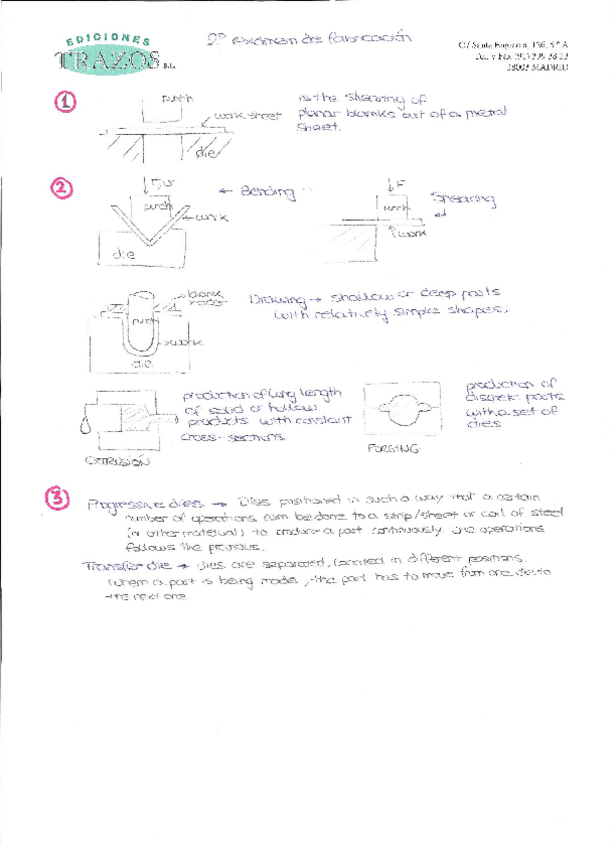 EDICIONES
TRAZOS S.L.
2º examen de fabricación
28003 MADRID
1
punch
work sheet
die
is the shearing of
planar blanks out of a metal
sheet.
2
punch
work
die
← Bending
F
punch
work
Shearing
blank
punch
work
die
Drawing → shallow or deep parts
with relatively simple shapes.
production of long length
of solid or hollow
products with constant
cross-sections
EXTRUSION
production of
discrete parts
with a set of
dies
FORGING
3
Progressive dies → Dies positioned in such a way that a certain
number of operations can be done to a strip/sheet or coil of steel
(or other material) to produce a part continuously. One operations
follows the previous.
Transfer die → dies are separated, located in different positions.
When a part is being made, the part has to move from one die to
the next one.